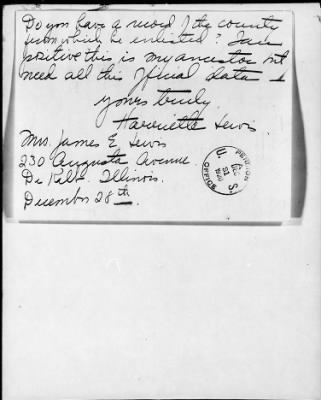 Do you have a record of the county
from which he enlisted? I am
positive this is my ancestor but
need all this official data
yours truly
Harriette Lewis.
Mrs. James E Lewis
230 Augusta Avenue
De Kalb. Illinois.
December 28th.
U. S.
PENSION
OFFICE
31